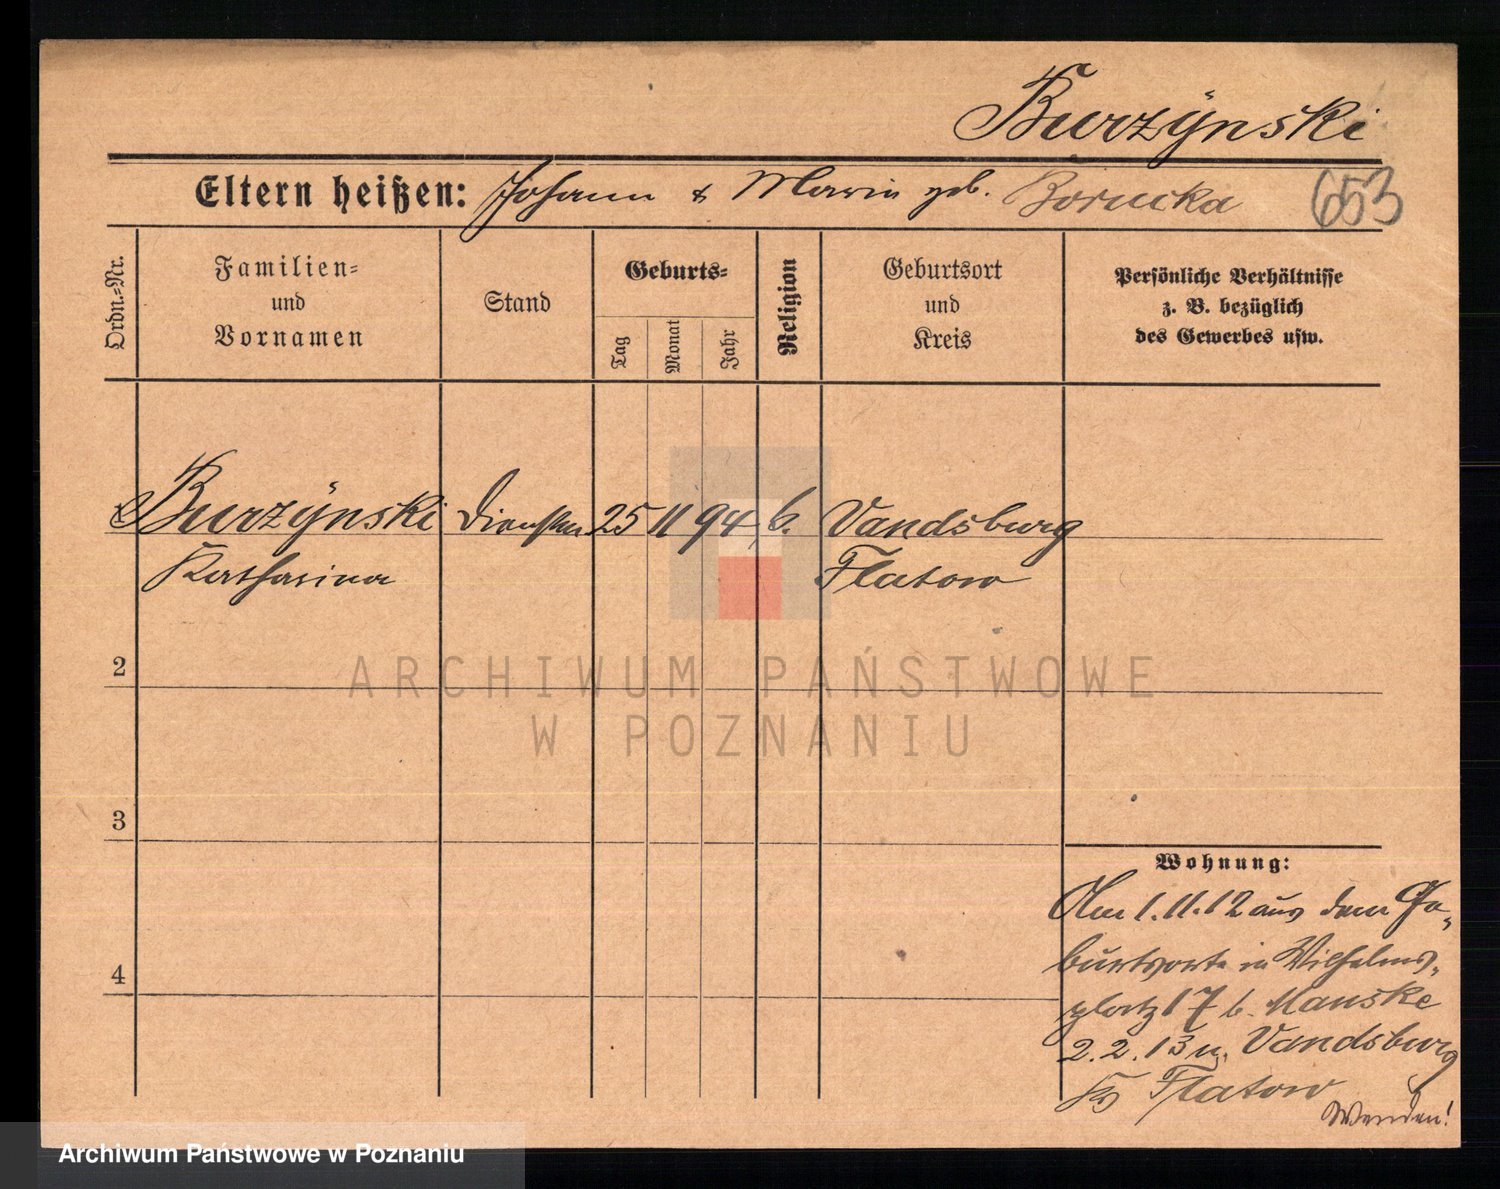 Burzÿnski
Eltern heißen: Johann & Marie geb. Borucka 653
Ordn.-Nr.
Familien-
und
Vornamen
Stand
Geburts-
Tag
Monat
Jahr
Religion
Geburtsort
und
Kreis
Persönliche Verhältnisse
z. B. bezüglich
des Gewerbes usw.
Burzÿnski 25 11 94 Vandsburg
Katharina Flatow
2
3
4
Wohnung:
Am 1.11.12 aus dem Ge-
burtsorte in Wilhelms-
platz 17 b. Manske
2.2.13 n. Vandsburg
Kr Flatow
Wenden!
ARCHIWUM PAŃSTWOWE
W POZNANIU
Archiwum Państwowe w Poznaniu